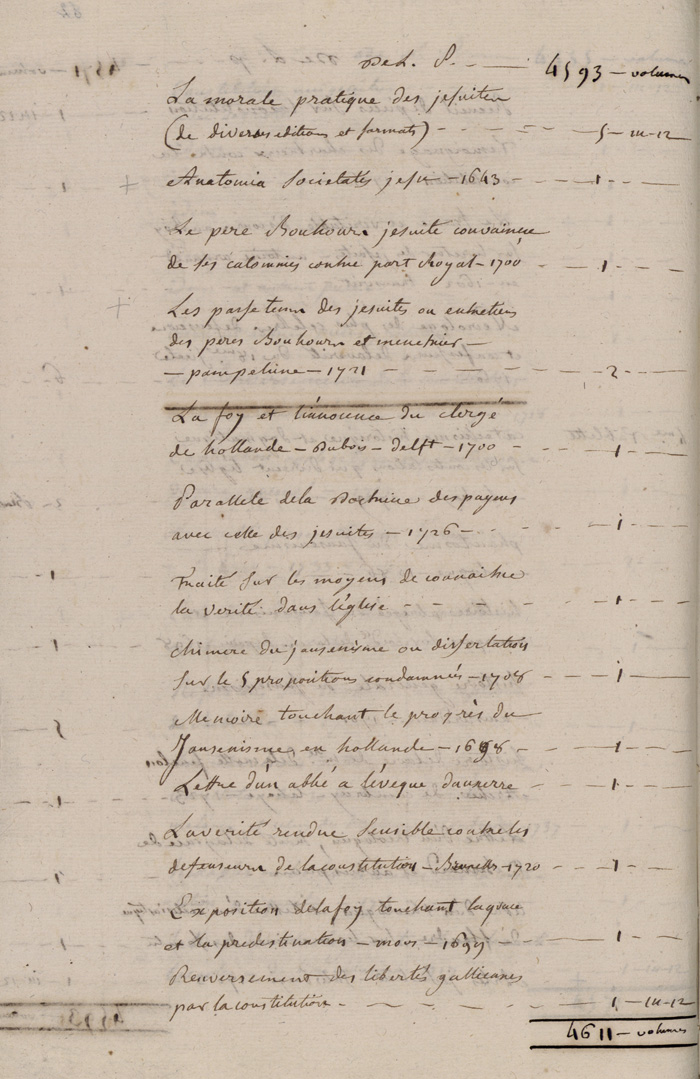 De L. P. — 4593 — volumes
La morale pratique des jesuites
(de diverses editions et formats) — 5 — in-12
Anatomia Societatis jesu — 1643 — 1 —
Le pere Bouhours jesuite convaincu
de ses calomnies contre port Royal — 1700 — 1 —
Les passetems des jesuites ou entretiens
des peres Bouhours et menetrier —
— pampelune — 1721 — 2 —
La foy et l'innocence du clergé
de hollande — Dubois — delft — 1700 — 1 —
Parallele de la Doctrine des payens
avec celle des jesuites — 1726 — 1 —
Traité sur les moyens de connaitre
la verité dans l'église — 1 —
chimere du jansenisme ou dissertation
sur le 5 propositions condamnés — 1708 — 1 —
Memoire touchant le progrès du
Jansenisme en hollande — 1698 — 1 —
Lettre d'un abbé a l'éveque d'auxerre — 1 —
La verité rendue Sensible contre les
defenseurs de la constitution — Bruxelles — 1720 — 1 —
Exposition de la foy touchant la grace
et la predestination — mons — 1699 — 1 —
Renversement des libertés gallicanes
par la constitution — 1 — in-12
4611 — volumes